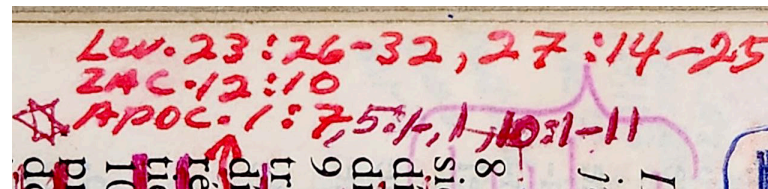 Lev. 23:26-32, 27:14-25
ZAC. 12:10
APOC. 1:7, 5:1-, 1-, 10:1-11
8
9